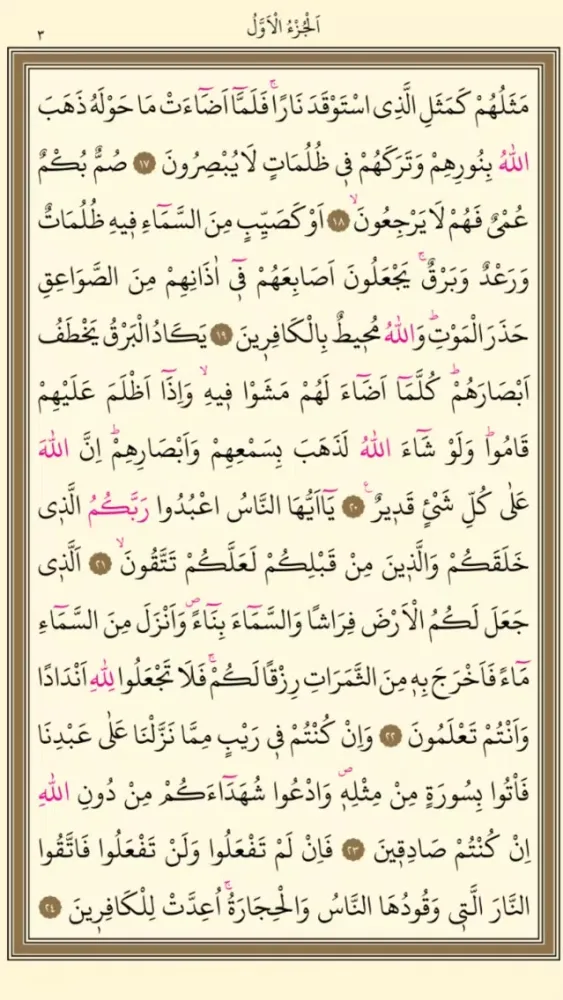 اَلْجُزْءُ الْاَوَّلُ ٣
مَثَلُهُمْ كَمَثَلِ الَّذِى اسْتَوْقَدَ نَارًاۚ فَلَمَّٓا اَضَٓاءَتْ مَا حَوْلَهُ ذَهَبَ
اللّٰهُ بِنُورِهِمْ وَتَرَكَهُمْ فٖى ظُلُمَاتٍ لَا يُبْصِرُونَ ١٧ صُمٌّ بُكْمٌ
عُمْىٌ فَهُمْ لَا يَرْجِعُونَۙ ١٨ اَوْ كَصَيِّبٍ مِنَ السَّمَٓاءِ فٖيهِ ظُلُمَاتٌ
وَرَعْدٌ وَبَرْقٌۚ يَجْعَلُونَ اَصَابِعَهُمْ فٖٓى اٰذَانِهِمْ مِنَ الصَّوَاعِقِ
حَذَرَ الْمَوْتِؕ وَاللّٰهُ مُحٖيطٌ بِالْكَافِرٖينَ ١٩ يَكَادُ الْبَرْقُ يَخْطَفُ
اَبْصَارَهُمْؕ كُلَّمَٓا اَضَٓاءَ لَهُمْ مَشَوْا فٖيهِۙ وَاِذَٓا اَظْلَمَ عَلَيْهِمْ
قَامُواؕ وَلَوْ شَٓاءَ اللّٰهُ لَذَهَبَ بِسَمْعِهِمْ وَاَبْصَارِهِمْؕ اِنَّ اللّٰهَ
عَلٰى كُلِّ شَىْءٍ قَدٖيرٌࣖ ٢٠ يَٓا اَيُّهَا النَّاسُ اعْبُدُوا رَبَّكُمُ الَّذٖى
خَلَقَكُمْ وَالَّذٖينَ مِنْ قَبْلِكُمْ لَعَلَّكُمْ تَتَّقُونَۙ ٢١ اَلَّذٖى
جَعَلَ لَكُمُ الْاَرْضَ فِرَاشًا وَالسَّمَٓاءَ بِنَٓاءًࣕ وَاَنْزَلَ مِنَ السَّمَٓاءِ
مَٓاءً فَاَخْرَجَ بِهٖ مِنَ الثَّمَرَاتِ رِزْقًا لَكُمْۚ فَلَا تَجْعَلُوا لِلّٰهِ اَنْدَادًا
وَاَنْتُمْ تَعْلَمُونَ ٢٢ وَاِنْ كُنْتُمْ فٖى رَيْبٍ مِمَّا نَزَّلْنَا عَلٰى عَبْدِنَا
فَأْتُوا بِسُورَةٍ مِنْ مِثْلِهٖࣕ وَادْعُوا شُهَدَٓاءَكُمْ مِنْ دُونِ اللّٰهِ
اِنْ كُنْتُمْ صَادِقٖينَ ٢٣ فَاِنْ لَمْ تَفْعَلُوا وَلَنْ تَفْعَلُوا فَاتَّقُوا
النَّارَ الَّتٖى وَقُودُهَا النَّاسُ وَالْحِجَارَةُۚ اُعِدَّتْ لِلْكَافِرٖينَ ٢٤